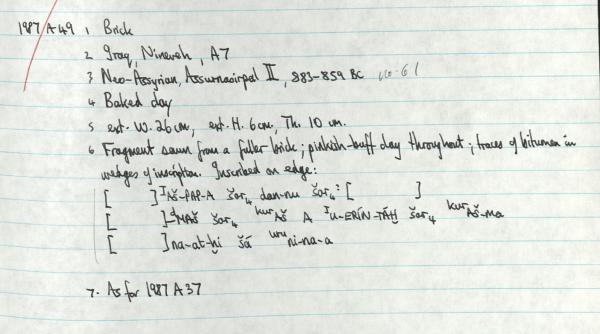 1987 A 49 1 Brick
2 Iraq, Nineveh, A7
3 Neo-Assyrian, Assurnasirpal II, 883-859 BC
4 Baked clay
5 ext. W. 26 cm, ext. H. 6 cm, Th. 10 cm.
6 Fragment sawn from a fuller brick; pinkish-buff clay throughout; traces of bitumen in
wedges of inscription. Inscribed on edge:
[ ] ᴵAŠ-PAP-A šar₄ dan-nu šar₄ [ ]
[ ]-ᵈMAŠ šar₄ ᵏᵘʳAŠ A ᴵTU-ERÍN-TÁḪ šar₄ ᵏᵘʳAŠ-ma
[ ] na-at-ḫi šá ᵘʳᵘni-na-a
7. As for 1987 A 37